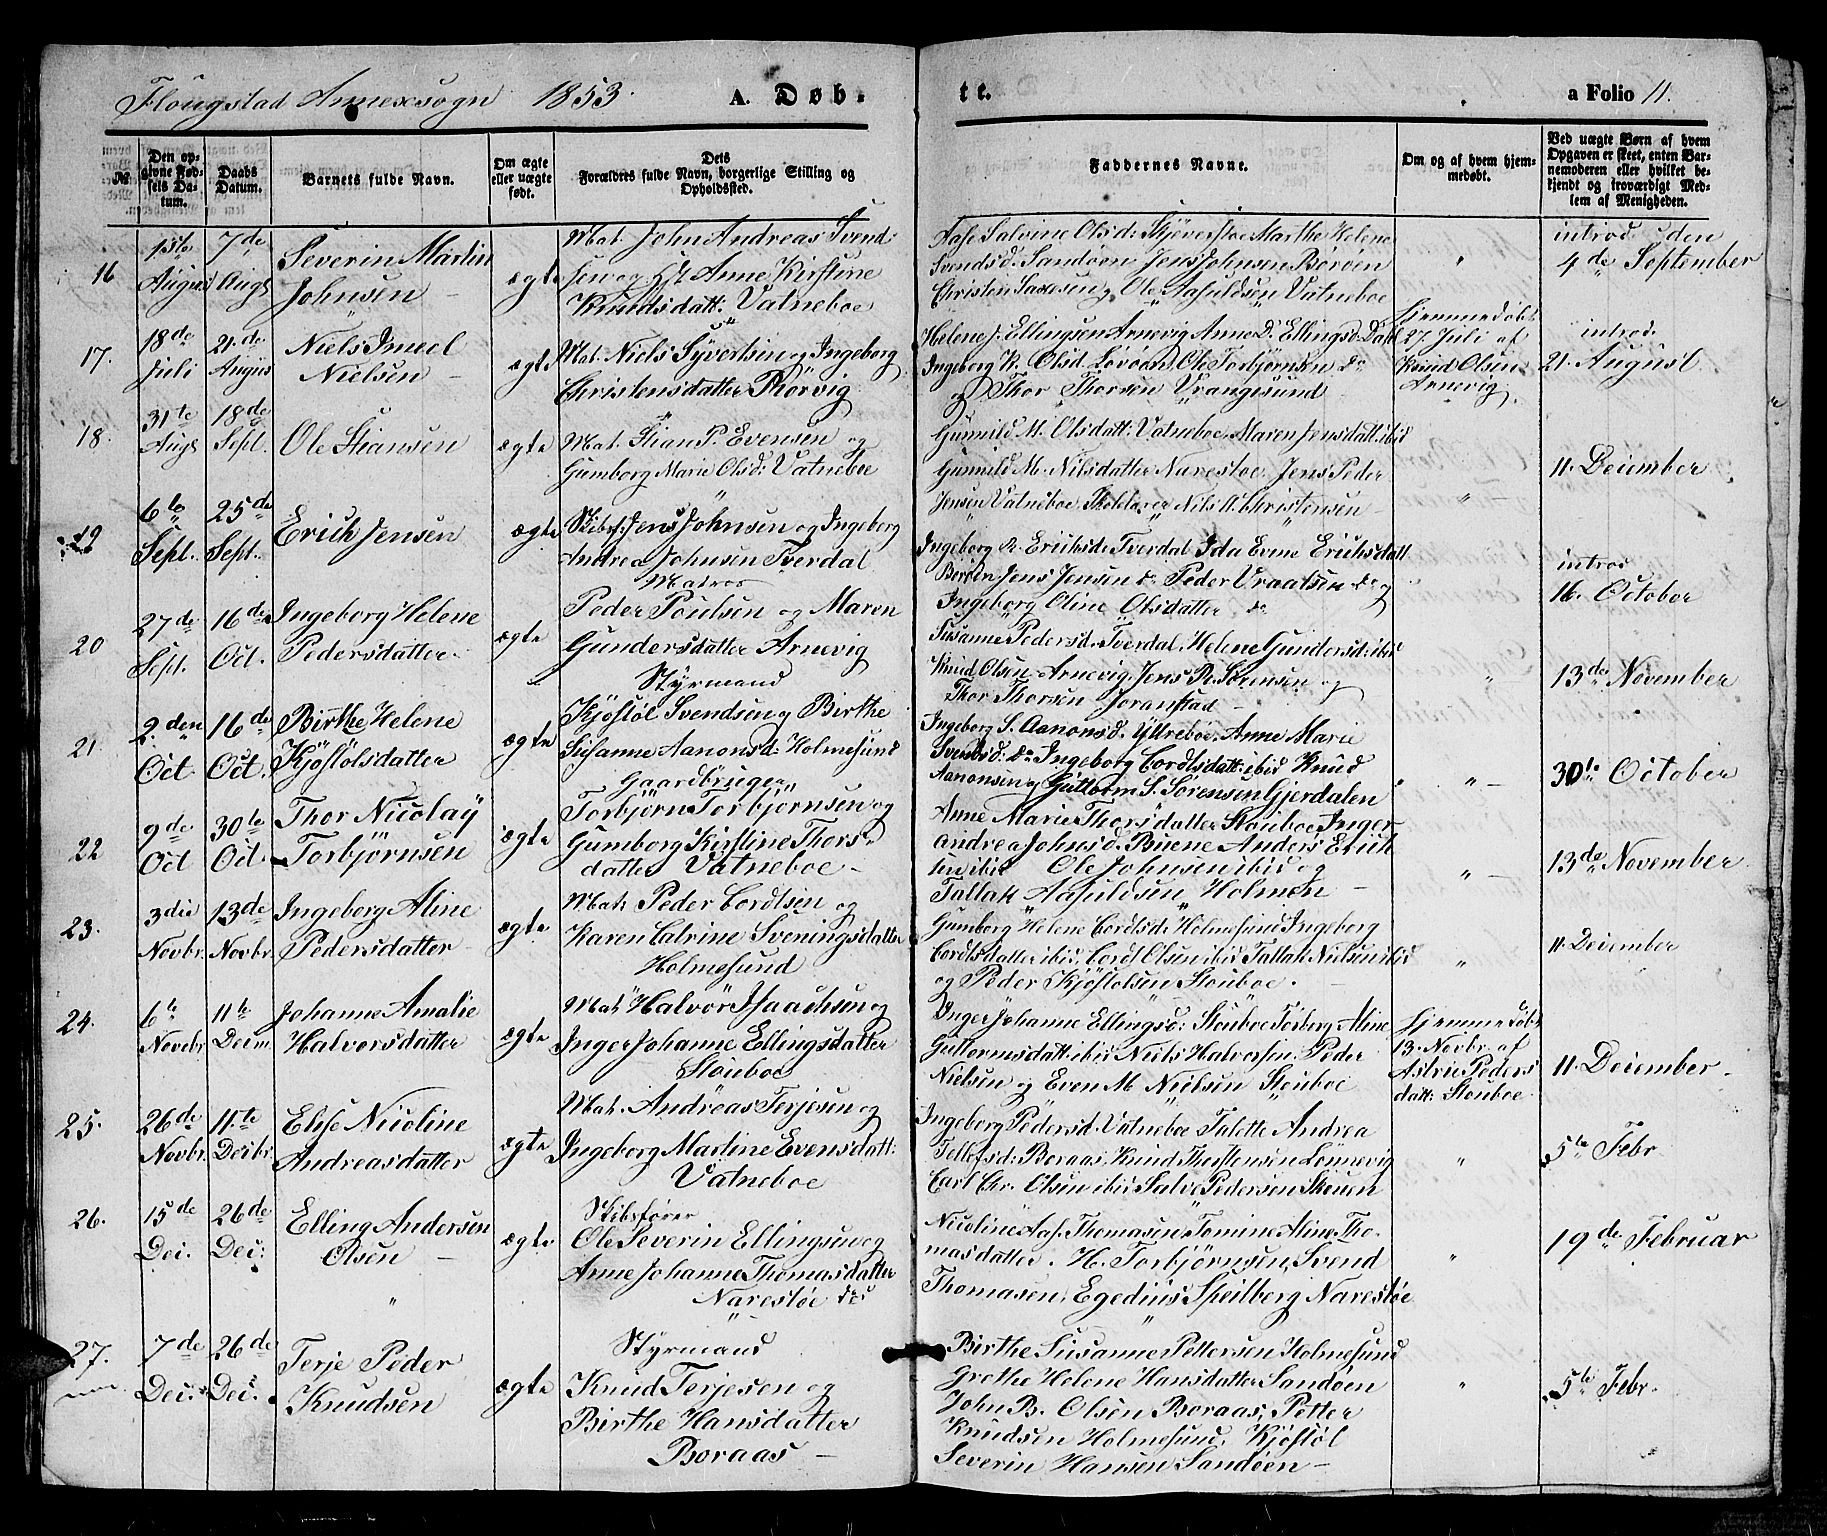 Flougstad Annexsogn 1853. A. Døb-
te. a Folio 11.
№ Den opgivne Fødsels Datum. Daabs Datum. Barnets fulde Navn. Om ægte eller uægte født. Dets Forældres fulde Navn, borgerlige Stilling og Opholdsted.
Faddernes Navne. Om og af hvem hjemmedøbt. Ved uægte Børn af hvem Opgaven er skeet, enten Barnemoderen eller hvilket bekjendt og troværdigt Medlem af Menigheden.
16 Augus 7de Augs Severin Martin Johnsen ægte
Mat. John Andreas Svend-
sen og Anne Kirstine
Knudsdatt: Vatneboe
Aase Salvine Olsd: Marthe Helene
Svendsd. Sandøen Jens Johnsen Borøen
Christen Ole Aasuldsen Vatneboe
introd. den
4de September
17. 18de Juli 21de Augus Niels Nielsen ægte
Mat. Niels Syvertsen og Ingeborg
Christensdatter Rørvig
Helene J. Ellingsen Arnevig Anne D. Ellingsd. Dahl
Ingeborg K. Olsd. Ole Torbjørnsen do
og Thor Thorsen Vrangesund
hjemmedøbt
27 Juli af
Knud Olsen
Arnevig
introd.
21. August
18. 31te Augs 18de Sept. Ole Stiansen ægte
Mat. Stian P. Evensen og
Gumborg Marie Olsd: Vatneboe
Gunild M. Olsdatt: Vatneboe, Maren Jensdatt. ibid
Gunild M. Nilsdatter Narestoe. Jens Peder
Jensen Vatneboe Skolelærer Nils A. Christensen
11. December
19 6te Sept. 25de Sept. Erich Jensen ægte
Skibsf. Jens Johnsen og Ingeborg
Andrea Johnsen Tverdal
Ingeborg Erichsd: Tverdal Ida Evine Erichsdatt
Borøen Jens Jensen do Peder Vraalsen do og
Ingeborg Oline Olsdatter do
introd
16. October
20 27de Sept. 16de Oct. Ingeborg Helene Pedersdatter ægte
Matros
Peder Poulsen og Maren
Gundersdatter Arnevig
Susanne Pedersd. Tverdal, Helene Gundersd: ibid
Knud Olsen Arnevig, Jens R. Sørensen og
Thor Thorsen Joranstad
13de November
21. 2den Oct 16de Oct. Birthe Helene Kjøstølsdatter ægte
Styrmand
Kjøstøl Svendsen og Birthe
Susanne Aanonsd: Holmesund
Ingeborg S. Aanonsd. Yttrebøe, Anne Marie
Svendsd: do Ingeborg Cordtsdatt: ibid Knud
Aanonsen og Guttorm S. Sørensen Gjerdalen
30te October
22 9de Oct 30te Oct. Thor Nicolay Torbjørnsen ægte
Gaardbruger
Torbjørn Torbjørnsen og
Gumborg Kirstine Thors-
datter Vatneboe
Anne Marie Thorsdatter Stouboe Inger
Andrea Johnsd. Buene Anders Erich
sen ibid Ole Johnsen ibid og
Tallak Aasuldsen Holmen
13de November
23. 3die Novbr. 13de Novbr. Ingeborg Aline Pedersdatter ægte
Mat. Peder Cordtsen og
Karen Catrine Sveningsdatter
Holmesund
Gumborg Helene Cordtsd. Holmesund Ingeborg
Cordtsdatter ibid, Cordt Olsen ibid Tallak Nielsen ibid
og Peder Kjøstolsen Stouboe.
11. December
24. 6te Novebr. 11te Decm. Johanne Amalie Halvorsdatter ægte
Mat. Halvor Isaachsen og
Inger Johanne Ellingsdatter
Stouboe
Inger Johanne Ellingsd: Stouboe Torberg Aline
Guttormsdatt: ibid Niels Halvorsen, Peder
Nielsen og Even M. Nielsen Stouboe
hjemmedøbt
13. Novbr. af
Astrie Peders
datt: Stouboe
11. December
25. 26de Novbr. 11te Decbr. Elise Nicoline Andreasdatter ægte
Mat. Andreas Terjesen og
Ingeborg Martine Evensdatt:
Vatneboe
Ingeborg Pedersd. Vatneboe Talette Andrea
Tellefsd: Boraas, Knud Thorstensen Lønnevig
Carl Chr. Olsen ibid Salve Pedersen Skouen
5te Febr
26. 15de Dec. 26de Dec: Elling Andersen Olsen ægte
Skibsfører
Ole Severin Ellingsen og
Anne Johanne Thomasdatter
Narestøe
Nicoline Aas. Thomasen, Tomine Aline Tho-
masdatter. H. Torbjørnsen, Svend
Thomasen, Egedius Speilberg Narestøe
19de Februar
27. 7de Dec. 26de Dec. Terje Peder Knudsen ægte
Styrmand
Knud Terjesen og
Birthe Hansdatter
Boraas
Birthe Susanne Pettersen Holmesund
Grethe Helene Hansdatter Sandøen
John B. Olsen Boraas, Petter
Knudsen Holmesund, Kjøstøl
Severin Hansen Sandøen
5te Febr.